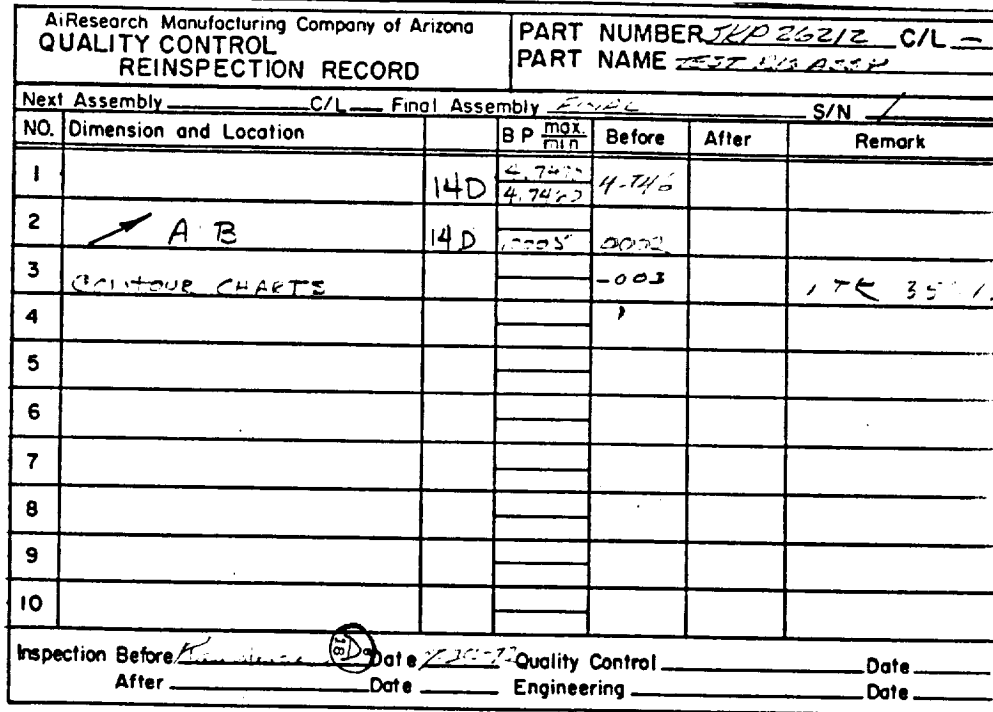 AiResearch Manufacturing Company of Arizona
QUALITY CONTROL
REINSPECTION RECORD
PART NUMBER JKP 26212 C/L —
PART NAME TEST ASSY
Next Assembly C/L Final Assembly FINAL S/N 1
NO. Dimension and Location BP max. min Before After Remark
1 14D 4-746
2 A B 14D .0005 .0002
3 CONTOUR CHARTS -003
4
5
6
7
8
9
10
Inspection Before 18 Date Quality Control Date
After Date Engineering Date